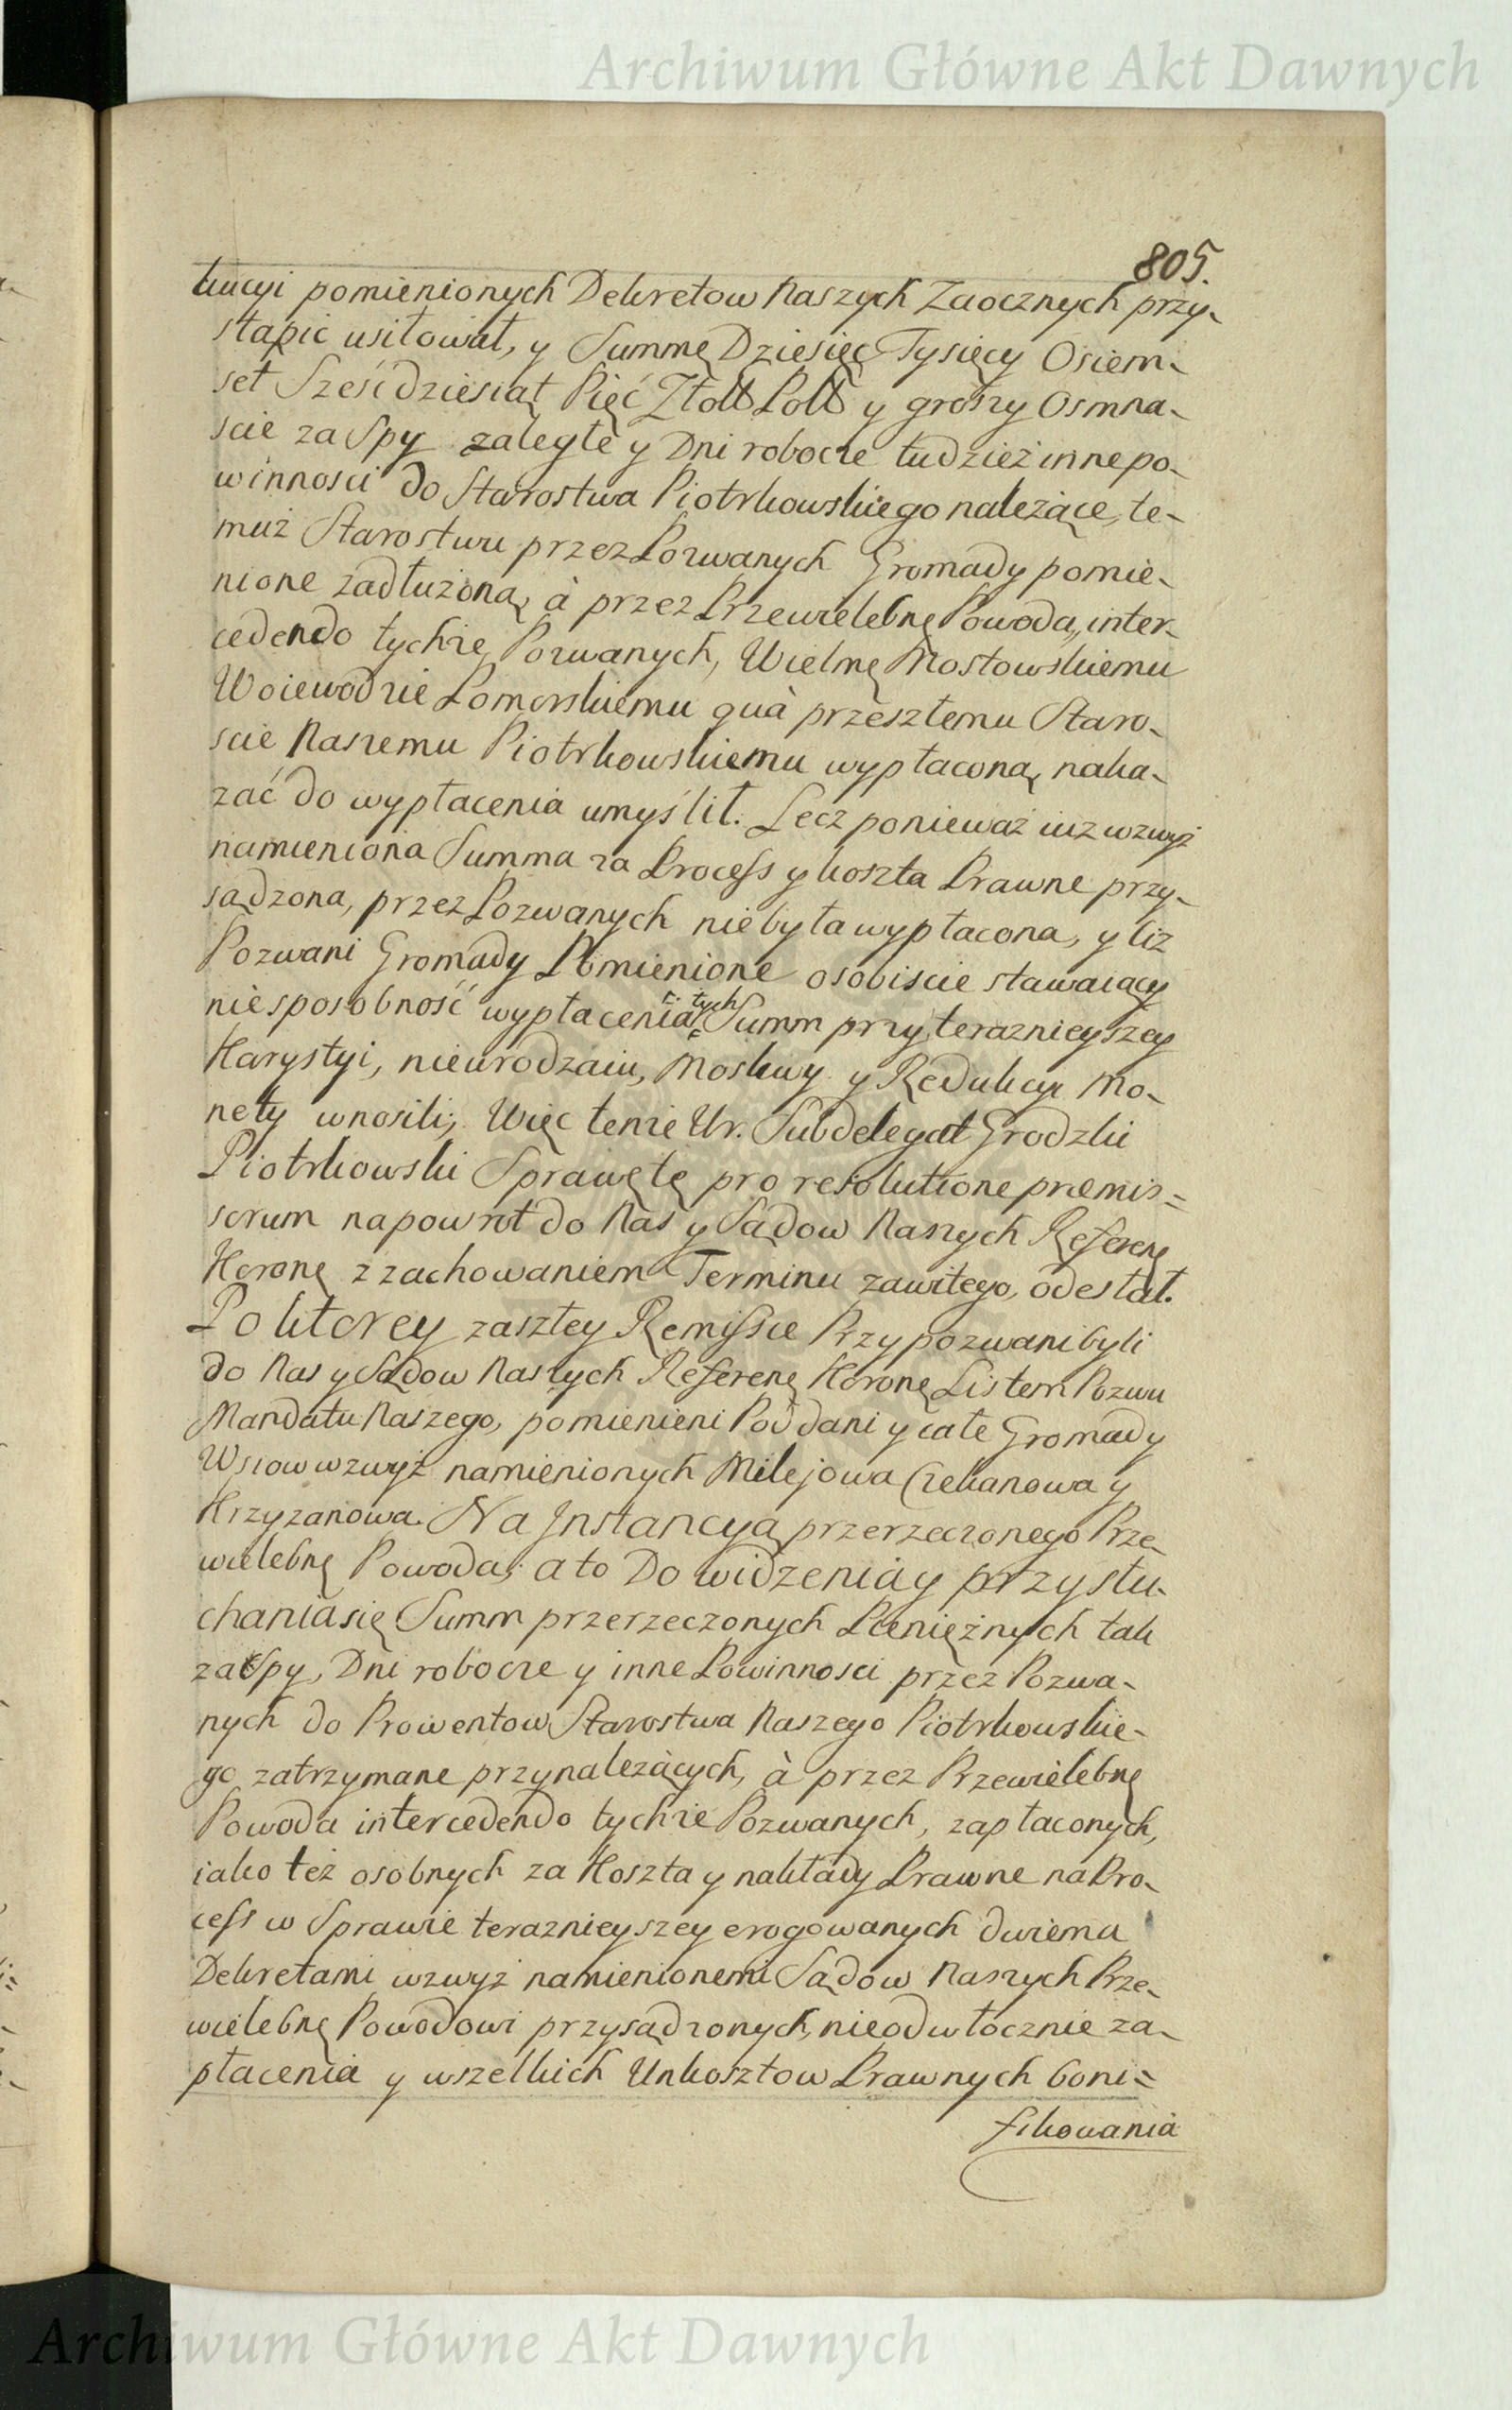 Archiwum Główne Akt Dawnych
805.
kucyi pomienionych Dekretow Naszych Zaocznych przy-
stąpic usiłował, y Summę Dziesięć Tysięcy Osiem-
set Sześćdziesiąt Pięć Złoll Poll y groszy Osmna-
scie za Spy zaległe y Dni robocze tudzież inne po-
winnosci do Starostwa Piotrkowskiego należące, te-
muż Starostwu przez Pozwanych Gromady pomie-
nione zadłużoną, à przez Przewielebnę Powoda, inter-
cedendo tychże Pozwanych, Wielmę Mostowskiemu
Woiewodzie Pomorskiemu quà przeszłemu Staro-
scie Naszemu Piotrkowskiemu wypłaconą, naka-
zać do wypłacenia umyślił. Lecz ponieważ iuz wzwyż
namieniona Summa za Process y koszta Prawne przy-
sądzona, przez Pozwanych niebyła wypłacona, y ciż
Pozwani Gromady Pomienione osobiscie stawaiący
niesposobność wypłacenia tych Summ przy teraznieyszey
Karystyi, nieurodzaiu, Moskwy y Redukcyi Mo-
nety wnosili; Więc tenże Ur. Subdelegat Grodzki
Piotrkowski Sprawę tę pro resolutione præmis=
sorum napowrot do Nas y Sądow Naszych Referenę
Koronę z zachowaniem Terminu zawitego, odesłał.
Po ktorey zaszłey Remissie Przypozwani byli
do Nas y Sądow Naszych Referenę Koronę Listem Pozwu
Mandatu Naszego, pomienieni Poddani y całe Gromady
Wsiow wzwyż namienionych Milejowa Czekanowa y
Krzyzanowa. Na Jnstancyą przerzeczonego Prze-
wielebnę Powoda; a to Do widzenia y przysłu-
chania się Summ przerzeczonych Pieniężnych tak
za Spy, Dni robocze y inne Powinnosci przez Pozwa-
nych do Prowentow Starostwa Naszego Piotrkowskie-
go zatrzymane przynależących, à przez Przewielebnę
Powoda intercedendo tychże Pozwanych, zapłaconych,
iako też osobnych za Koszta y nakłady Prawne na Pro-
cess w Sprawie teraznieyszey erogowanych dwiema
Dekretami wzwyż namienionemi Sądow Naszych Prze-
wielebnę Powodowi przysądzonych, nieodwłocznie za-
płacenia y wszelkich Unkosztow Prawnych boni=
fikowania
Archiwum Główne Akt Dawnych